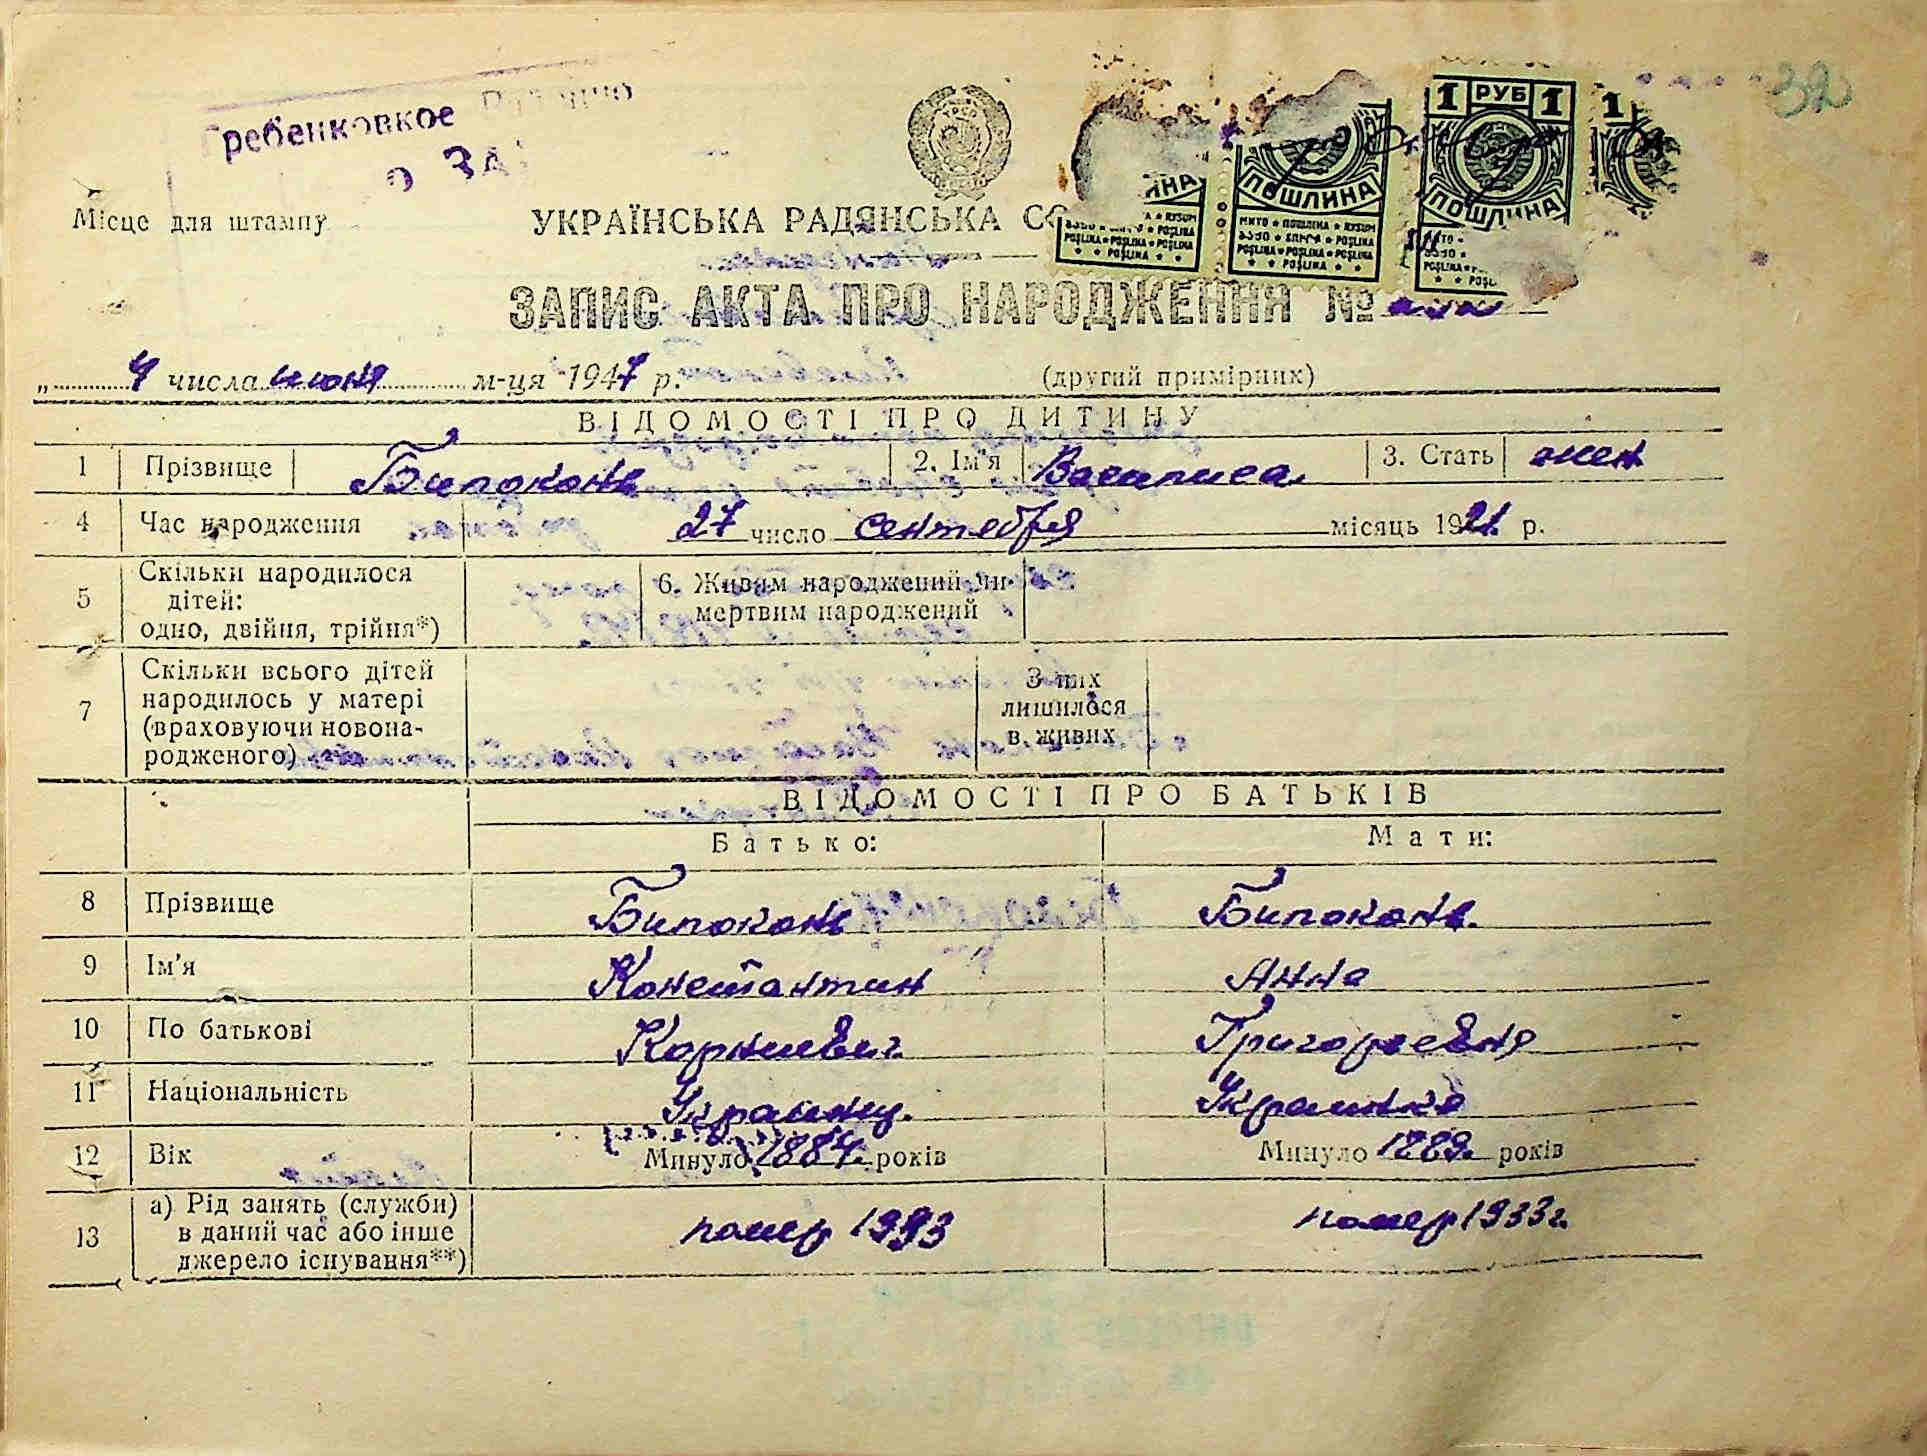 32
Гребенковкое
о ЗА
1 РУБ 1
1
ПОШЛИНА
ПОШЛИНА
МИТО * ПОШЛИНА * RYSUM
POŞLINA * POŞLINA * POŞLINA
* * POŞLINA * *
Місце для штампу
УКРАЇНСЬКА РАДЯНСЬКА СО
ЗАПИС АКТА ПРО НАРОДЖЕННЯ №
„ 4 числа июня м-ця 1947 р. (другий примірник)
ВІДОМОСТІ ПРО ДИТИНУ
1 Прізвище Билоконь 2. Ім'я Василиса 3. Стать жен
4 Час народження 27 число сентября місяць 1921. р.
5 Скільки народилося дітей: одно, двійня, трійня*) 6. Живим народжений чи мертвим народжений
7 Скільки всього дітей народилось у матері (враховуючи новонародженого) З них лишилося в живих
ВІДОМОСТІ ПРО БАТЬКІВ
Батько: Мати:
8 Прізвище Билоконь Билоконь.
9 Ім'я Константин Анна
10 По батькові Корниевич Григорьевна
11 Національність Украинц. Украинка
12 Вік Минуло 1884г. років Минуло 1889г. років
13 а) Рід занять (служби) в даний час або інше джерело існування**) помер 1933 помер 1933г.